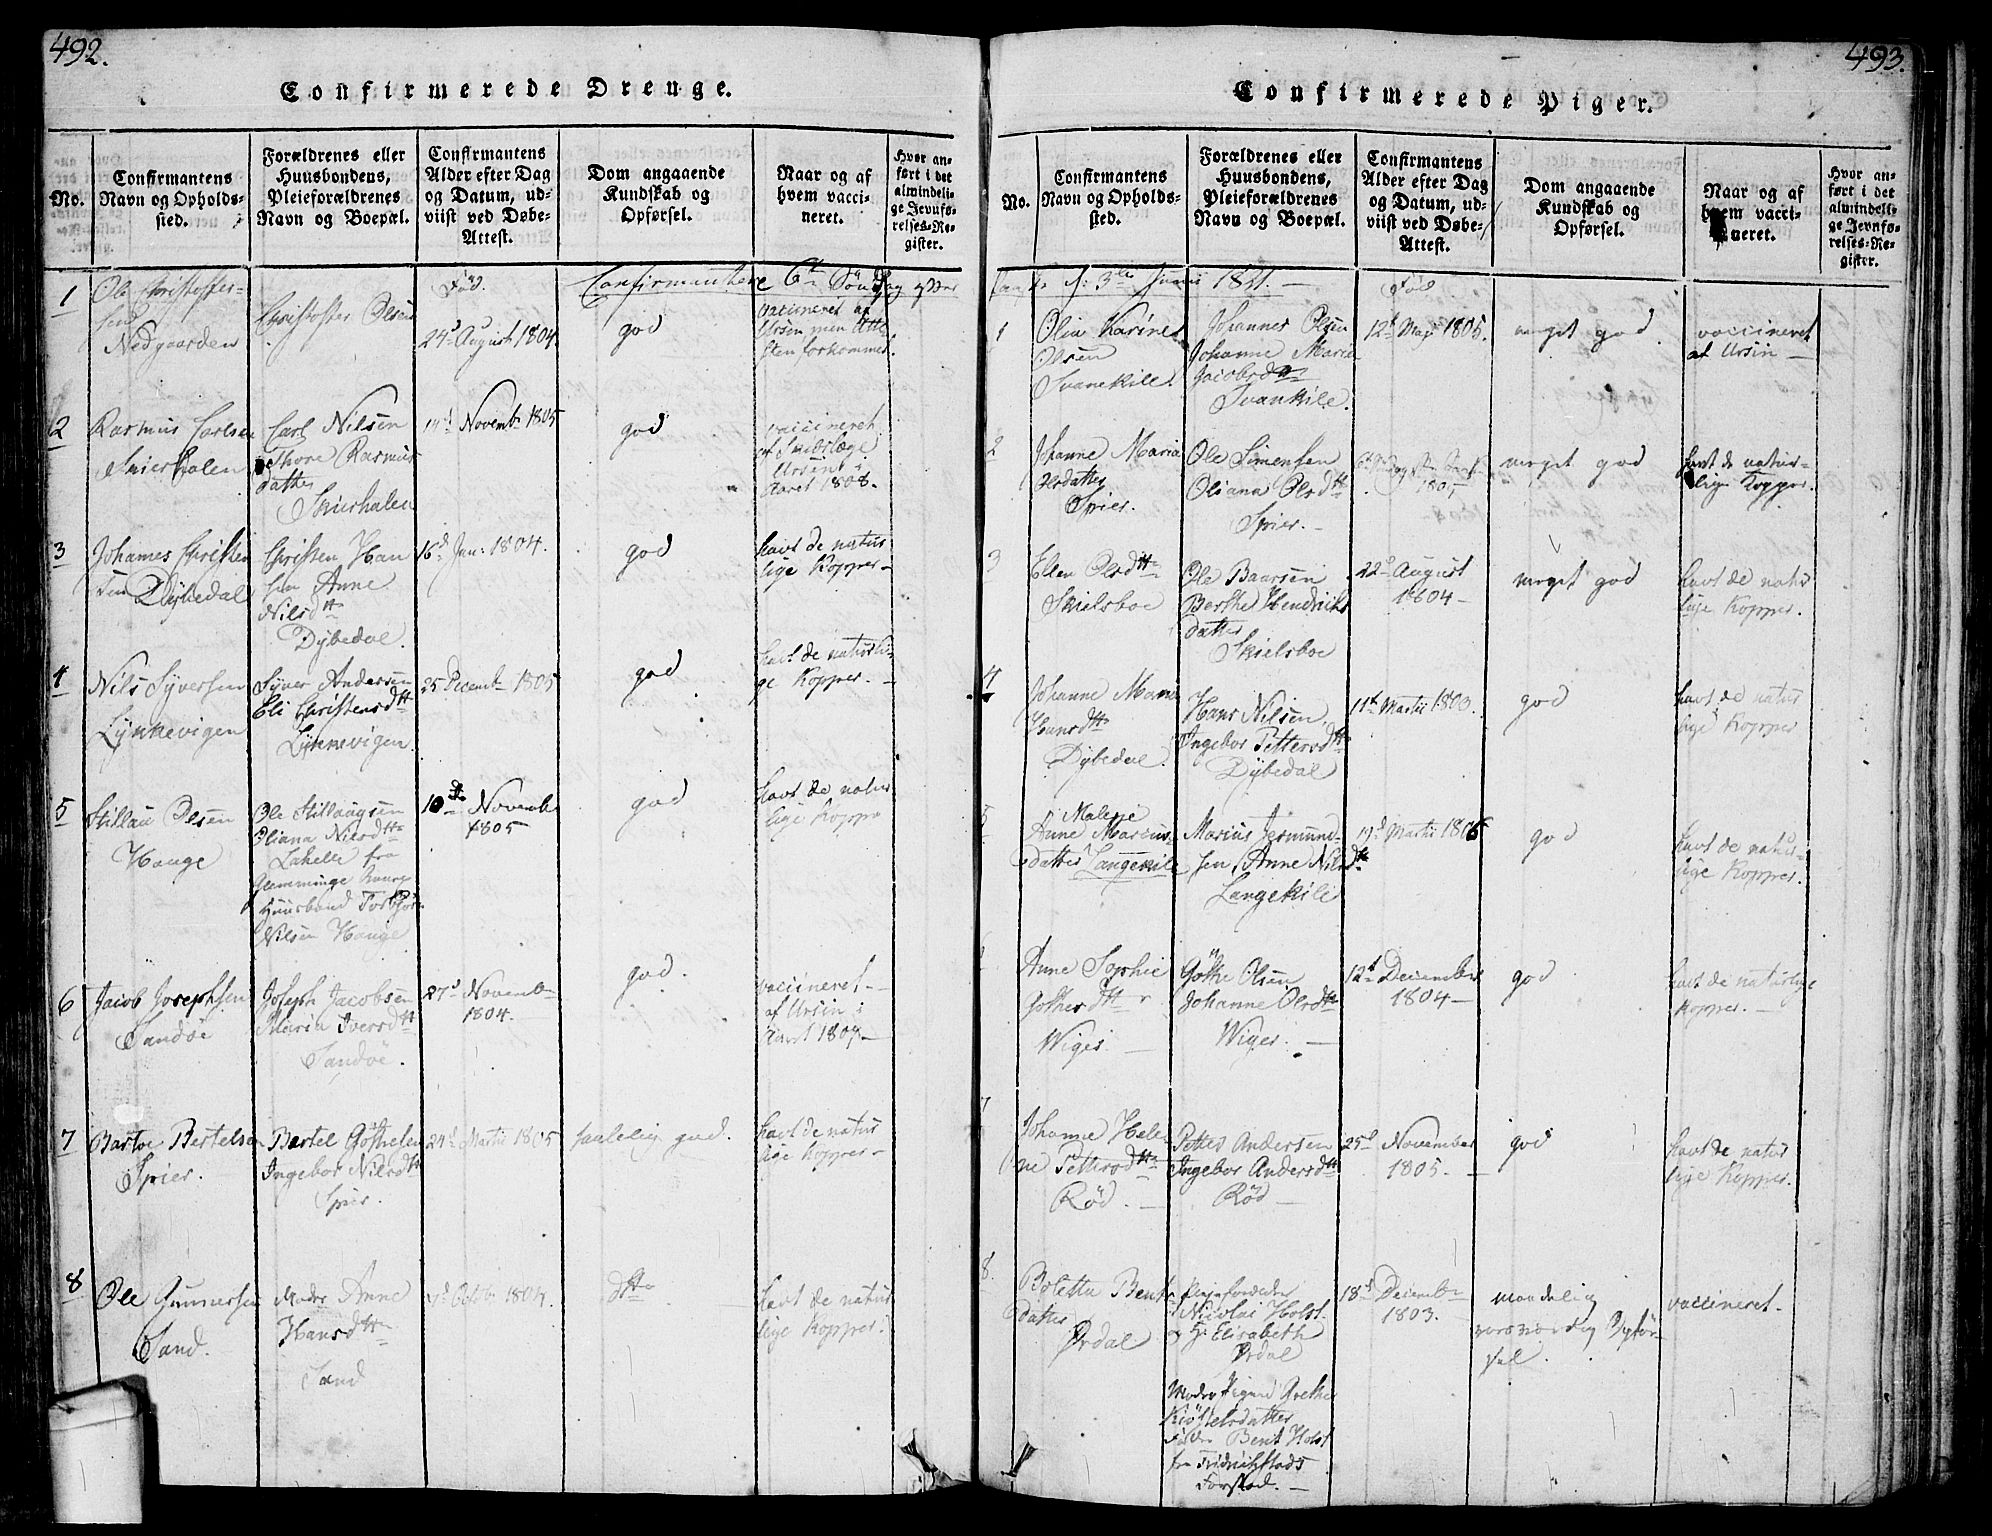 492.
Confirmerede Drenge.
No.
Confirmantens
Navn og Opholds-
sted.
Forældrenes eller
Huusbondens,
Pleieforældrenes
Navn og Boepæl.
Confirmantens
Alder efter Dag
og Datum, ud-
viist ved Døbe-
Attest.
Dom angaaende
Kundskab og
Opførsel.
Naar og af
hvem vacci-
neret.
Hvor an-
ført i det
almindeli-
ge Jevnfø-
relses-Re-
gister.
Fød.
Confirmantene 6te Søndag efter
1
Ole Christoffer-
sen
Nedgaarden
Christoffer Olsen
24d August 1804
god
vaccineret af
Ursin men Atte
sten forkommet.
2
Rasmus Carlsen
Skierhalen
Carl Nilsen
Thore Rasmus
datter
Skierhalen
14d Novembr 1805
god
vaccineret
af
Ursin i
Aaret 1808.
3
Johannes Christen
sen Dybedal
Christen Han
sen Anne
Nilsdttr
Dybedal.
16d Jan: 1804.
god
havt de natur
lige Kopper-
4
Nils Syversen
Lÿnkevigen
Syver Andersen
Eli Christensdttr
Lÿnkevigen
25 Decembr 1805
god
havt de naturli-
ge Kopper. -
5
Stillau Olsen
Hauge
Ole Stillaugsen
Oliana Nilsdttr
Lahelle fra
Glemminge
Huusbond Torbjör
Nilsen Hauge
10de Novembr
1805
god
havt de natur
lige Koppe
6
Jacob Josephsen
Sandöe
Joseph Jacobsen
Maria Iversdttr
Sandöe.
27d Novembr
1804.
god.
vaccineret -
af Ursin i
Aaret 1807 -
7
Bastoe Bertelsen
Spier.
Bertel Göthesen
Ingebor Nilsdttr
Spier.
24d Martii 1805
taalelig god.
havt de natur
lige Kopper -
8
Ole Gunnersen
Sand.
Moder Anne
Hansdttr
Sand
7d Octbr 1804.
dtto
havt de natur
lige Kopper.
493.
Confirmerede Piger.
No.
Confirmantens
Navn og Opholds-
sted.
Forældrenes eller
Huusbondens,
Pleieforældrenes
Navn og Boepæl.
Confirmantens
Alder efter Dag
og Datum, ud-
viist ved Døbe-
Attest.
Dom angaaende
Kundskab og
Opførsel.
Naar og af
hvem vacci-
neret.
Hvor an-
ført i det
almindeli-
ge Jevnfø-
relses-Re-
gister.
d: 3die Junii 1821. -
Fød
1
Olia Karine
Olsen
Svanekile.
Johannes Olsen
Johanne Maria
Jacobsdttr
Svankile.
12d May 1805.
meget god
vaccineret
af Ursin -
2
Johanne Maria
Olsdatter
Spier.
Ole Simensen
Oliana Olsdttr
Spier. -
1805
meget god
havt de natur-
lige Kopper.
3
Ellen Olsdttr
Skielsboe
Ole Baarsen
Berthe Hendrichs
datter
Skielsboe
22d August
1804 -
meget god
havt de natur
lige Kopper.
4
Johanne Maria
Hansdttr
Dybedal.
Hans Nilsen
Ingebor Pettersdttr
Dÿbedal
11te Martii 1803.
god
havt de natur
lige Kopper
5
Malene
Anne Marius-
datter Langekile
Marius Jermund-
sen, Anne Nilsdttr
Langekile
19d Martii 1806
god
havt de natur-
lige Kopper.
Anne Sophie
Gothesdttr
Wiger. -
Göthe Olsen
Johanne Olsdttr
Wiger. -
12d December
1804 -
god
havt de naturlige
Kopper. -
7
Johanne Hele-
ne Pettersdttr
Röd. -
Petter Andersen
Ingebor Andersdttr
Röd -
25d November
1805. -
god
havt de natur
lige Kopper.
8.
Boletta Bent
datter
Ørdal
Pleieforældre
Nicolai Holst
og Elisabeth
Ørdal
Moder Pigend Grethe
Kiöstelsdatter
Fader Bent Holst
fra Fridrichstads
Forstad. -
18d Decembr
1803.
maadelig
Opför-
sel.
vaccineret -